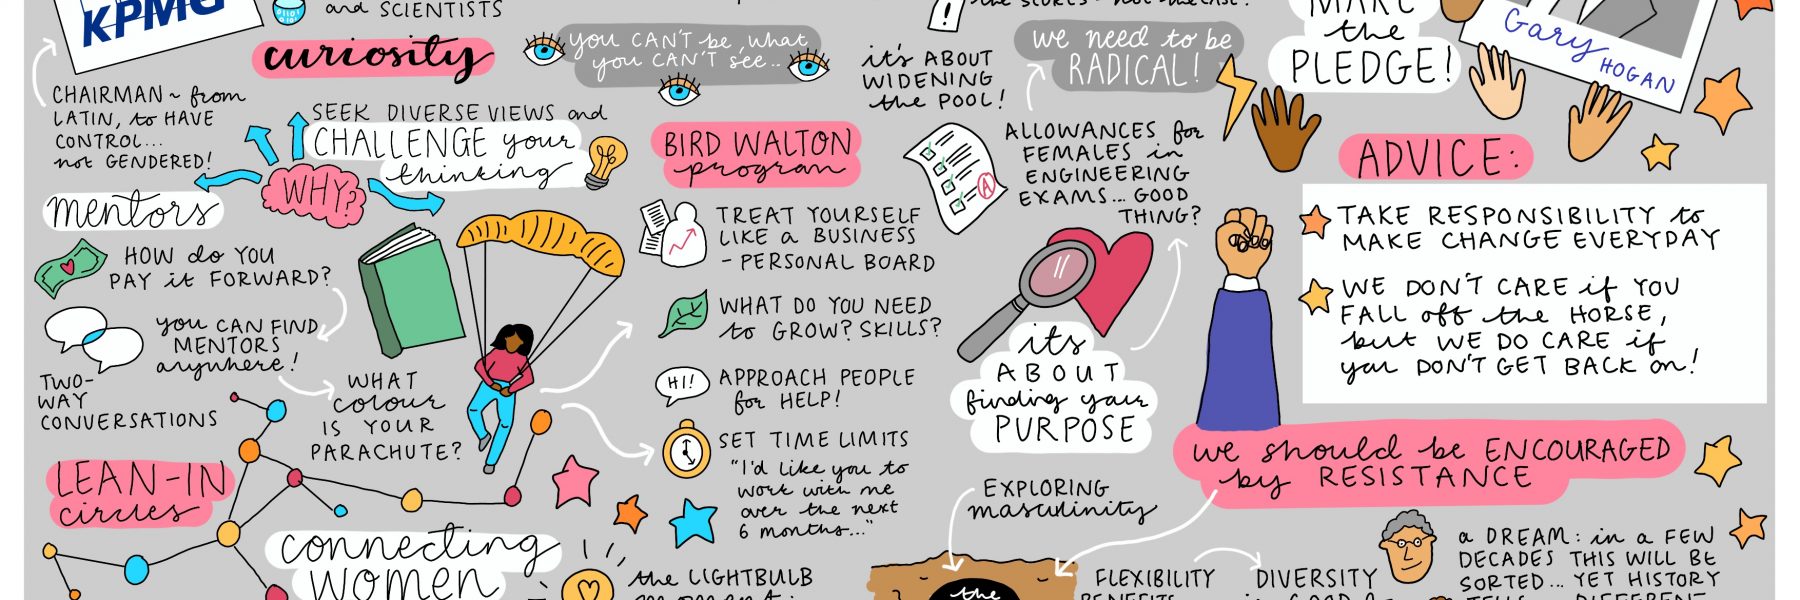 KPMG
and SCIENTISTS
CHAIRMAN ~ from
LATIN, to HAVE
CONTROL...
not GENDERED!
curiosity
SEEK DIVERSE VIEWS and
CHALLENGE your
thinking
WHY?
mentors
HOW do YOU
PAY it FORWARD?
you CAN FIND
MENTORS
anywhere!
TWO-
WAY
CONVERSATIONS
WHAT
colour
IS YOUR
PARACHUTE?
LEAN-IN
circles
connecting
WOMEN
you CAN'T be what
you CAN'T see...
BIRD WALTON
program
TREAT YOURSELF
LIKE a BUSINESS
- PERSONAL BOARD
WHAT DO YOU NEED
to GROW? SKILLS?
HI!
APPROACH PEOPLE
for HELP!
SET TIME LIMITS
"I'd like you to
work with me
over the next
6 months..."
the LIGHTBULB
!
it's ABOUT
WIDENING
the POOL!
we need to be
RADICAL!
A
ALLOWANCES for
FEMALES in
ENGINEERING
EXAMS... GOOD
THING?
it's
ABOUT
finding your
PURPOSE
EXPLORING
masculinity
the
FLEXIBILITY
BENEFITS
DIVERSITY
MAKE
the
PLEDGE!
Gary
HOGAN
ADVICE:
TAKE RESPONSIBILITY to
MAKE CHANGE EVERYDAY
WE DON'T CARE if YOU
FALL off the HORSE,
but WE DO CARE if
you DON'T GET BACK on!
we should be ENCOURAGED
by RESISTANCE
a DREAM: in a FEW
DECADES THIS WILL BE
SORTED... YET HISTORY